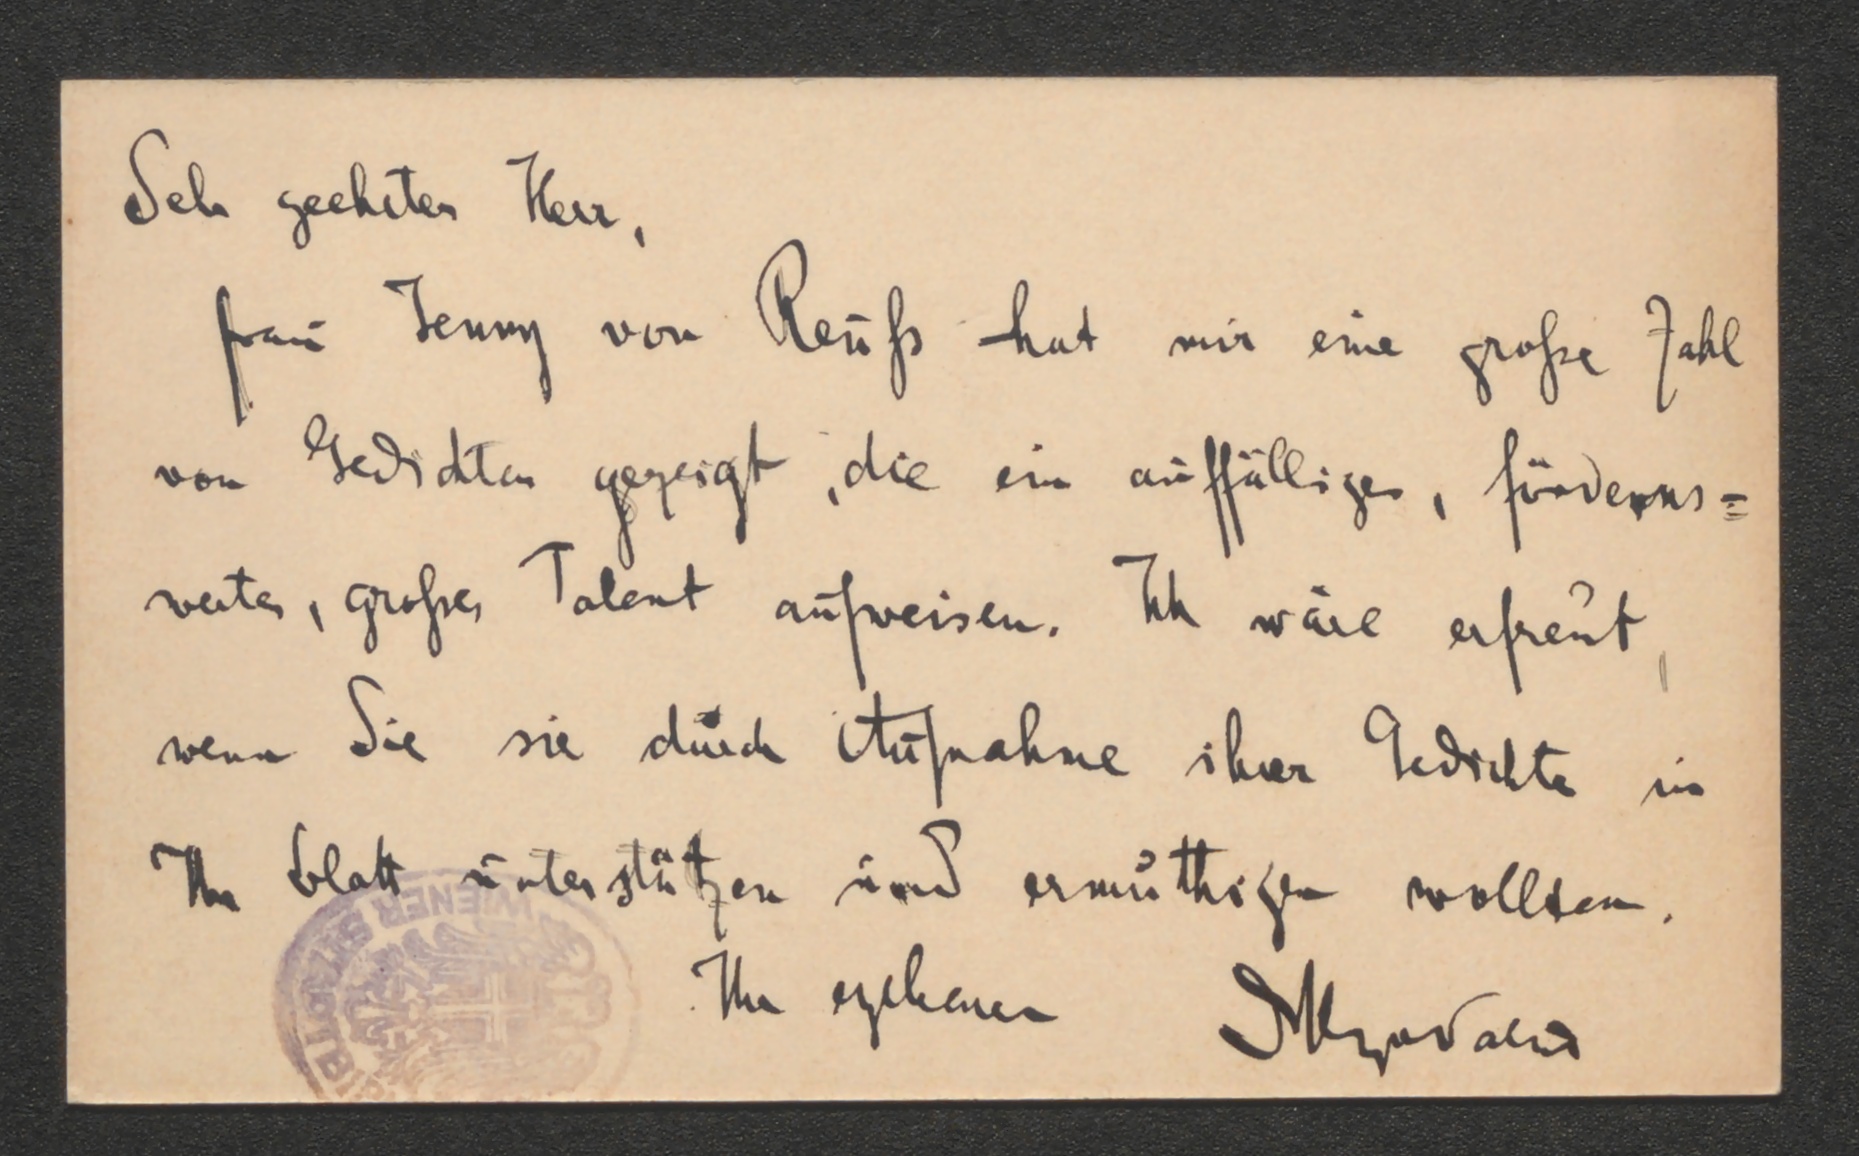 Sehr geehrter Herr,
Frau Jenny von Reuß hat mir eine große Zahl
von Gedichten gezeigt, die ein auffälliges, förderns=
wertes, großes Talent aufweisen. Ich wäre erfreut,
wenn Sie sie durch Aufnahme ihrer Gedichte in
Ihr Blatt unterstützen und ermuthigen wollten.
Ihr ergebener
WIENER STADTBI